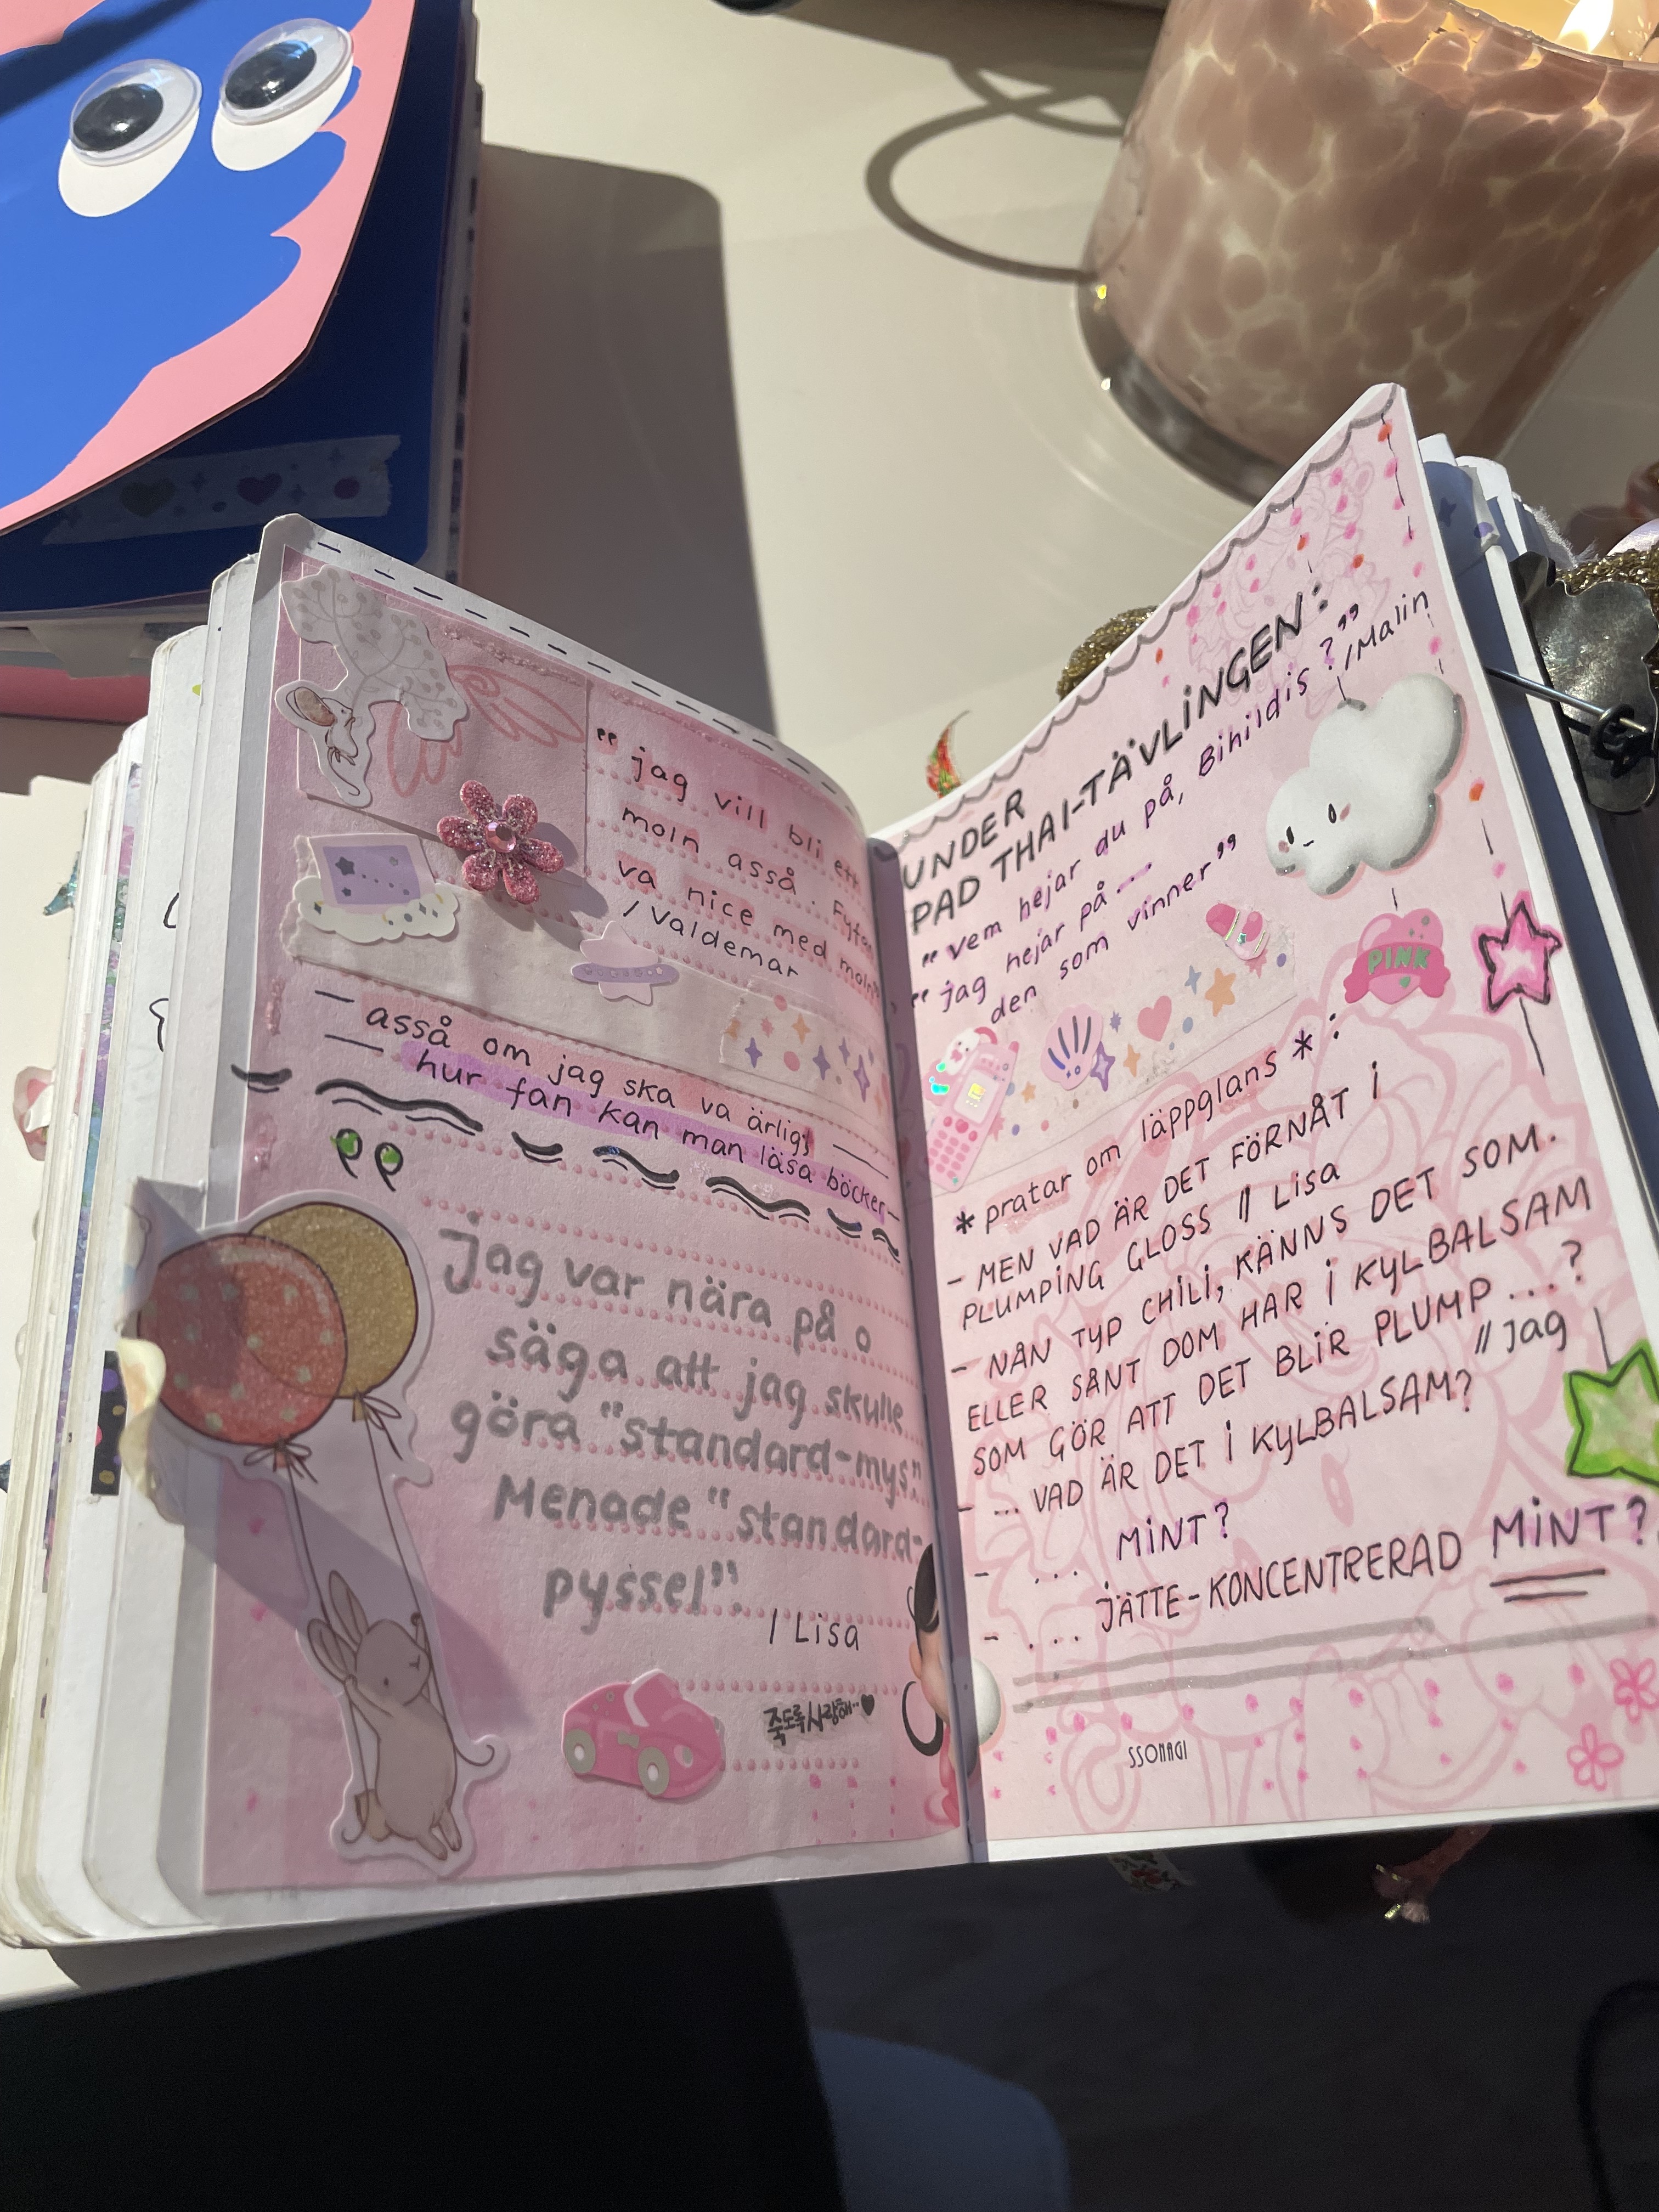 "jag vill bli ett
moln asså. Fyfan
va nice med moln"
/Valdemar
— asså om jag ska va ärlig, —
— hur fan kan man läsa böcker —
"
Jag var nära på o
säga att jag skulle
göra "standard-mys".
Menade "standard-
pyssel".
/ Lisa
죽도록 사랑해..♥
UNDER
PAD THAI-TÄVLINGEN:
"vem hejar du på, Bihildis?"
/Malin
"jag hejar på...
den som vinner"
PINK
*pratar om läppglans*:
- MEN VAD ÄR DET FÖRNÅT I
PLUMPING GLOSS // Lisa
- NÅN TYP CHILI, KÄNNS DET SOM.
ELLER SÅNT DOM HAR I KYLBALSAM
SOM GÖR ATT DET BLIR PLUMP...?
// jag
- ... VAD ÄR DET I KYLBALSAM?
MINT?
- ...
- ... JÄTTE-KONCENTRERAD MINT?
SSONAGI